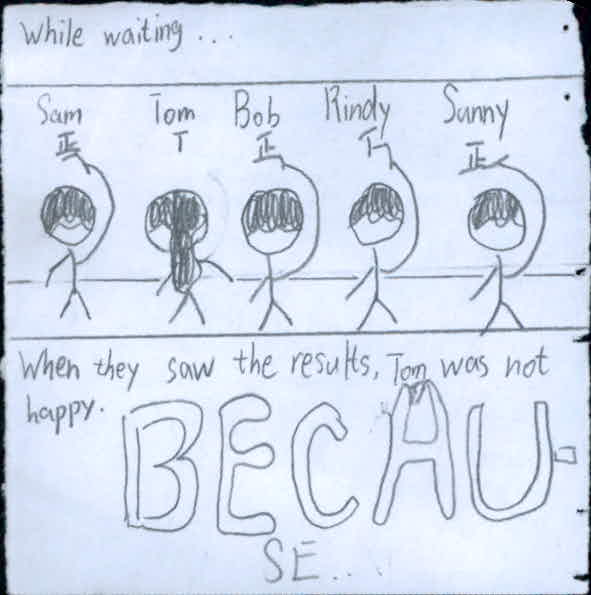 While waiting ...
Sam Tom Bob Rindy Sunny
正 T 正 下 正
When they saw the results, Tom was not
happy.
BECAU-
SE...